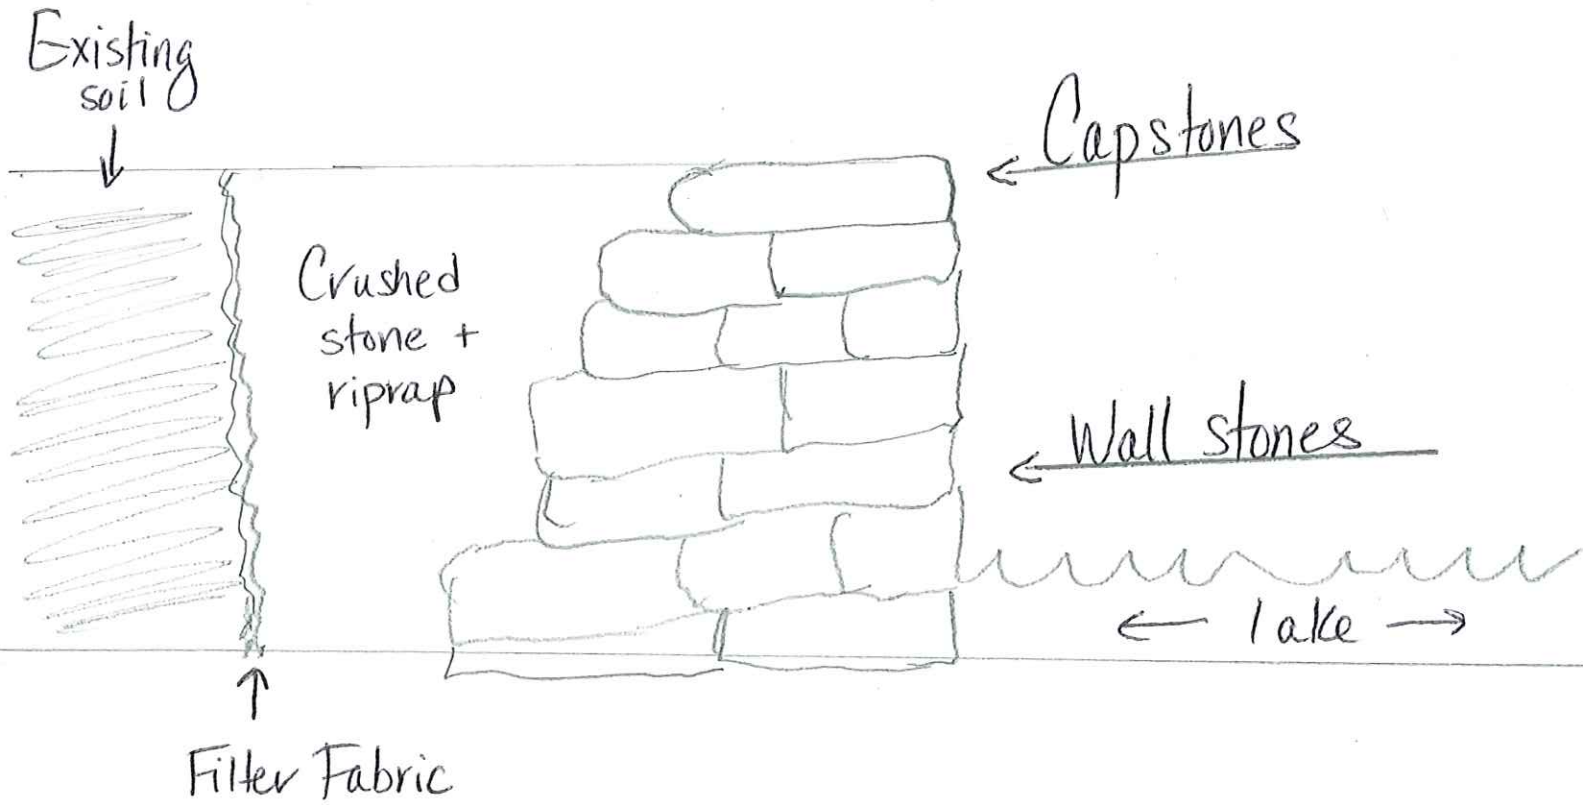 Existing
soil
Capstones
Crushed
stone +
riprap
Wall stones
lake
Filter Fabric